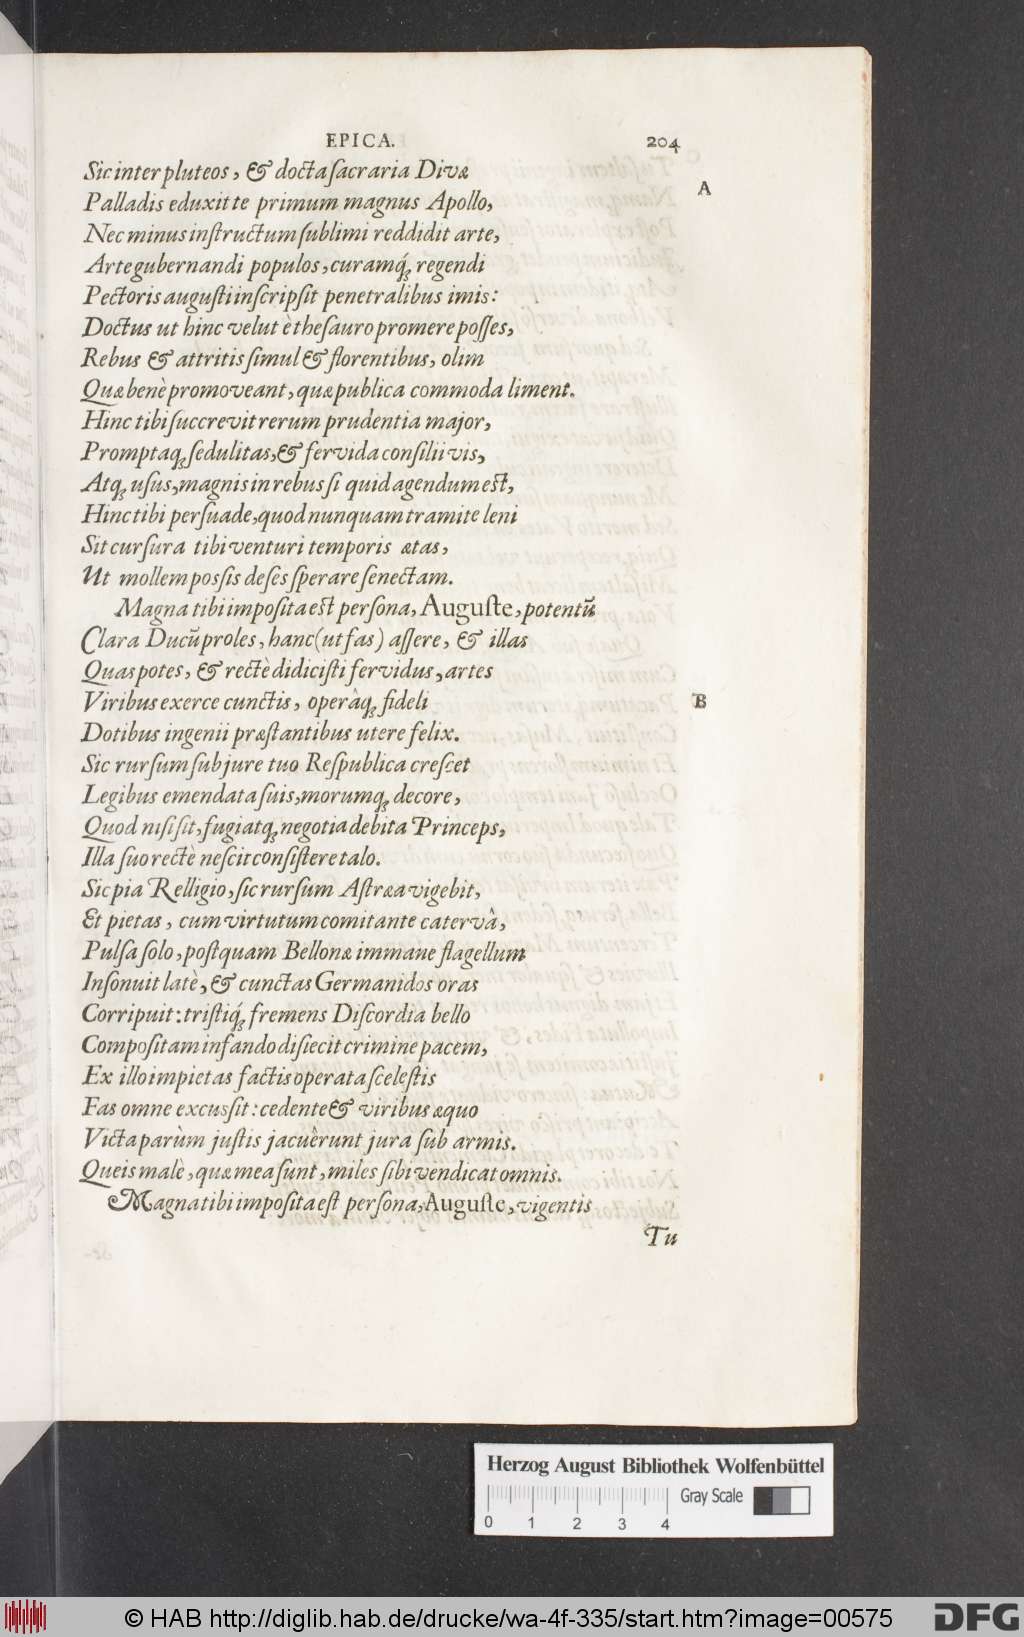 EPICA. 204
Sic inter pluteos, & docta ſacraria Divæ
A
Palladis eduxit te primum magnus Apollo,
Nec minus inſtructum ſublimi reddidit arte,
Arte gubernandi populos, curamq́; regendi
Pectoris auguſti inſcripſit penetralibus imis:
Doctus ut hinc velut è theſauro promere poſſes,
Rebus & attritis ſimul & florentibus, olim
Quæ benè promoveant, quæ publica commoda liment.
Hinc tibi ſuccrevit rerum prudentia major,
Promptaq; ſedulitas, & fervida conſilii vis,
Atq; uſus, magnis in rebus ſi quid agendum eſt,
Hinc tibi perſuade, quod nunquam tramite leni
Sit curſura tibi venturi temporis ætas,
Ut mollem possis deſes ſperare ſenectam.
Magna tibi impoſita eſt perſona, Auguſte, potentũ
Clara Ducũ proles, hanc (ut fas) aſſere, & illas
Quas potes, & rectè didiciſti fervidus, artes
Viribus exerce cunctis, operâq; fideli
B
Dotibus ingenii præſtantibus utere felix.
Sic rurſum ſub jure tuo Reſpublica creſcet
Legibus emendata ſuis, morumq; decore,
Quod niſi ſit, fugiatq; negotia debita Princeps,
Illa ſuo rectè neſcit conſiſtere talo.
Sic pia Relligio, ſic rurſum Aſtræa vigebit,
Et pietas, cum virtutum comitante catervâ,
Pulſa ſolo, poſtquam Bellonæ immane flagellum
Inſonuit latè, & cunctas Germanidos oras
Corripuit: triſtiq́; fremens Diſcordia bello
Compoſitam infando diſiecit crimine pacem,
Ex illo impietas factis operata ſceleſtis
Fas omne excussit: cedente & viribus æquo
Victa parùm juſtis jacuêrunt jura ſub armis.
Queis malè, quæ mea ſunt, miles ſibi vendicat omnis.
Magna tibi impoſita eſt perſona, Auguſte, vigentis
Tu
Herzog August Bibliothek Wolfenbüttel
Gray Scale
0 1 2 3 4
© HAB http://diglib.hab.de/drucke/wa-4f-335/start.htm?image=00575
DFG